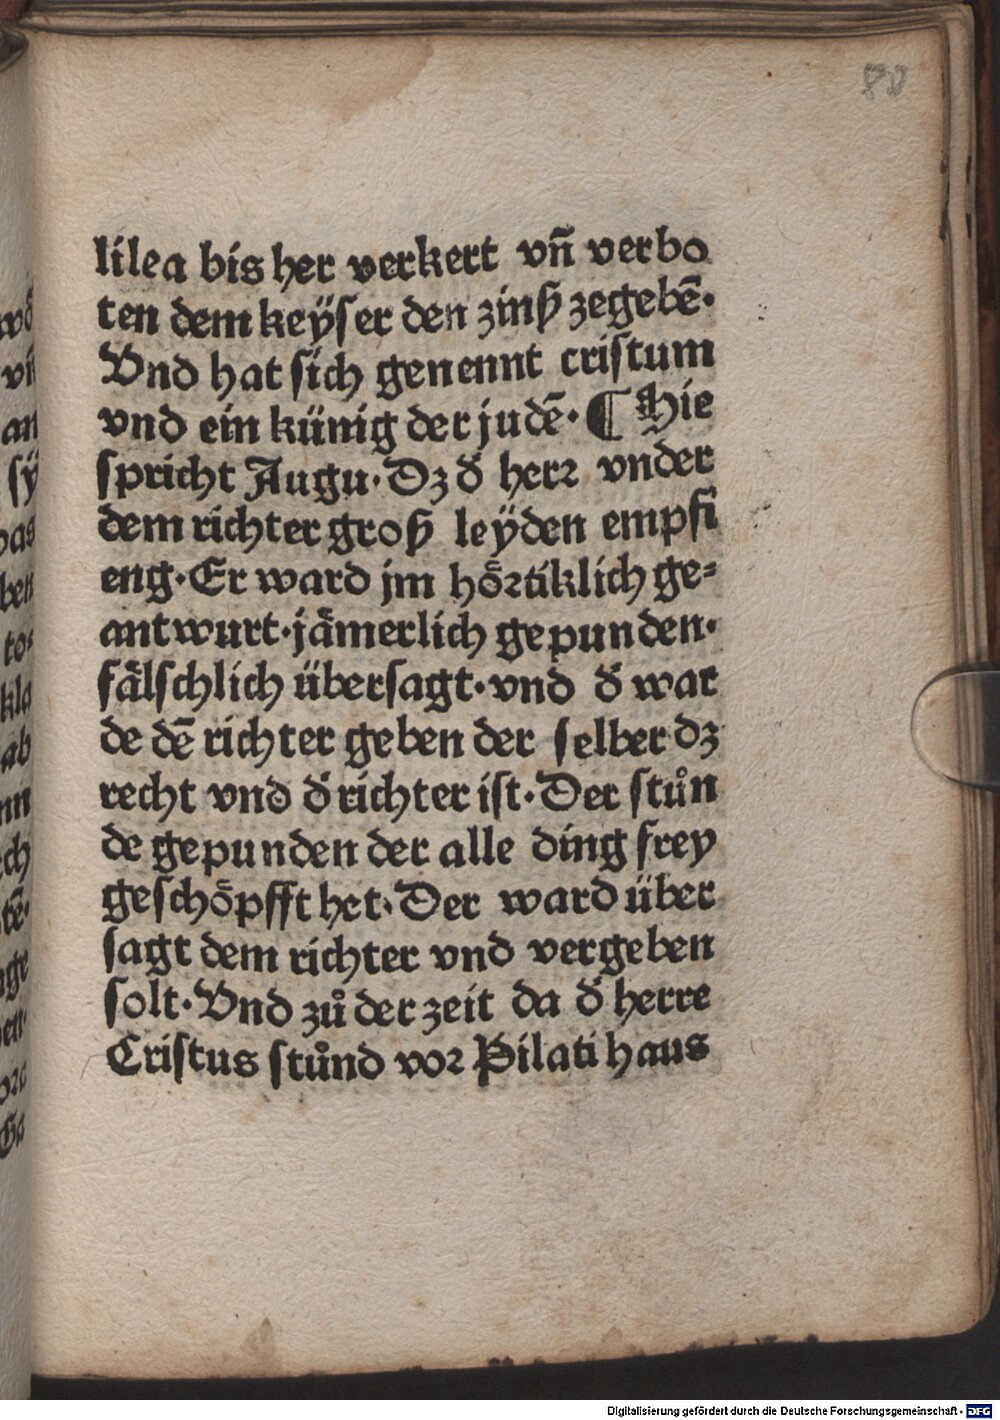 80
lilea bis her verkert vn̄ verbo
ten dem keÿser den zinß zegebē·
Vnd hat sich genennt cristum
vnd ein künig der judē· ¶ Hie
spricht Augu· Dz d̕ herꝛ vnder
dem richter groß leÿden empfi
eng· Er ward jm hoͤꝛtiklich ge⸗
antwurt· jaͤmerlich gepunden·
faͤlschlich übersagt· vnd d̕ war
de dē richter geben der selber dz
recht vnd d̕ richter ist· Der stůn
de gepunden der alle ding frey
geschoͤpfft het· Der ward über
sagt dem richter vnd vergeben
solt· Vnd zů der zeit da d̕ herre
Cristus stůnd voꝛ Pilati haus
Digitalisierung gefördert durch die Deutsche Forschungsgemeinschaft - DFG